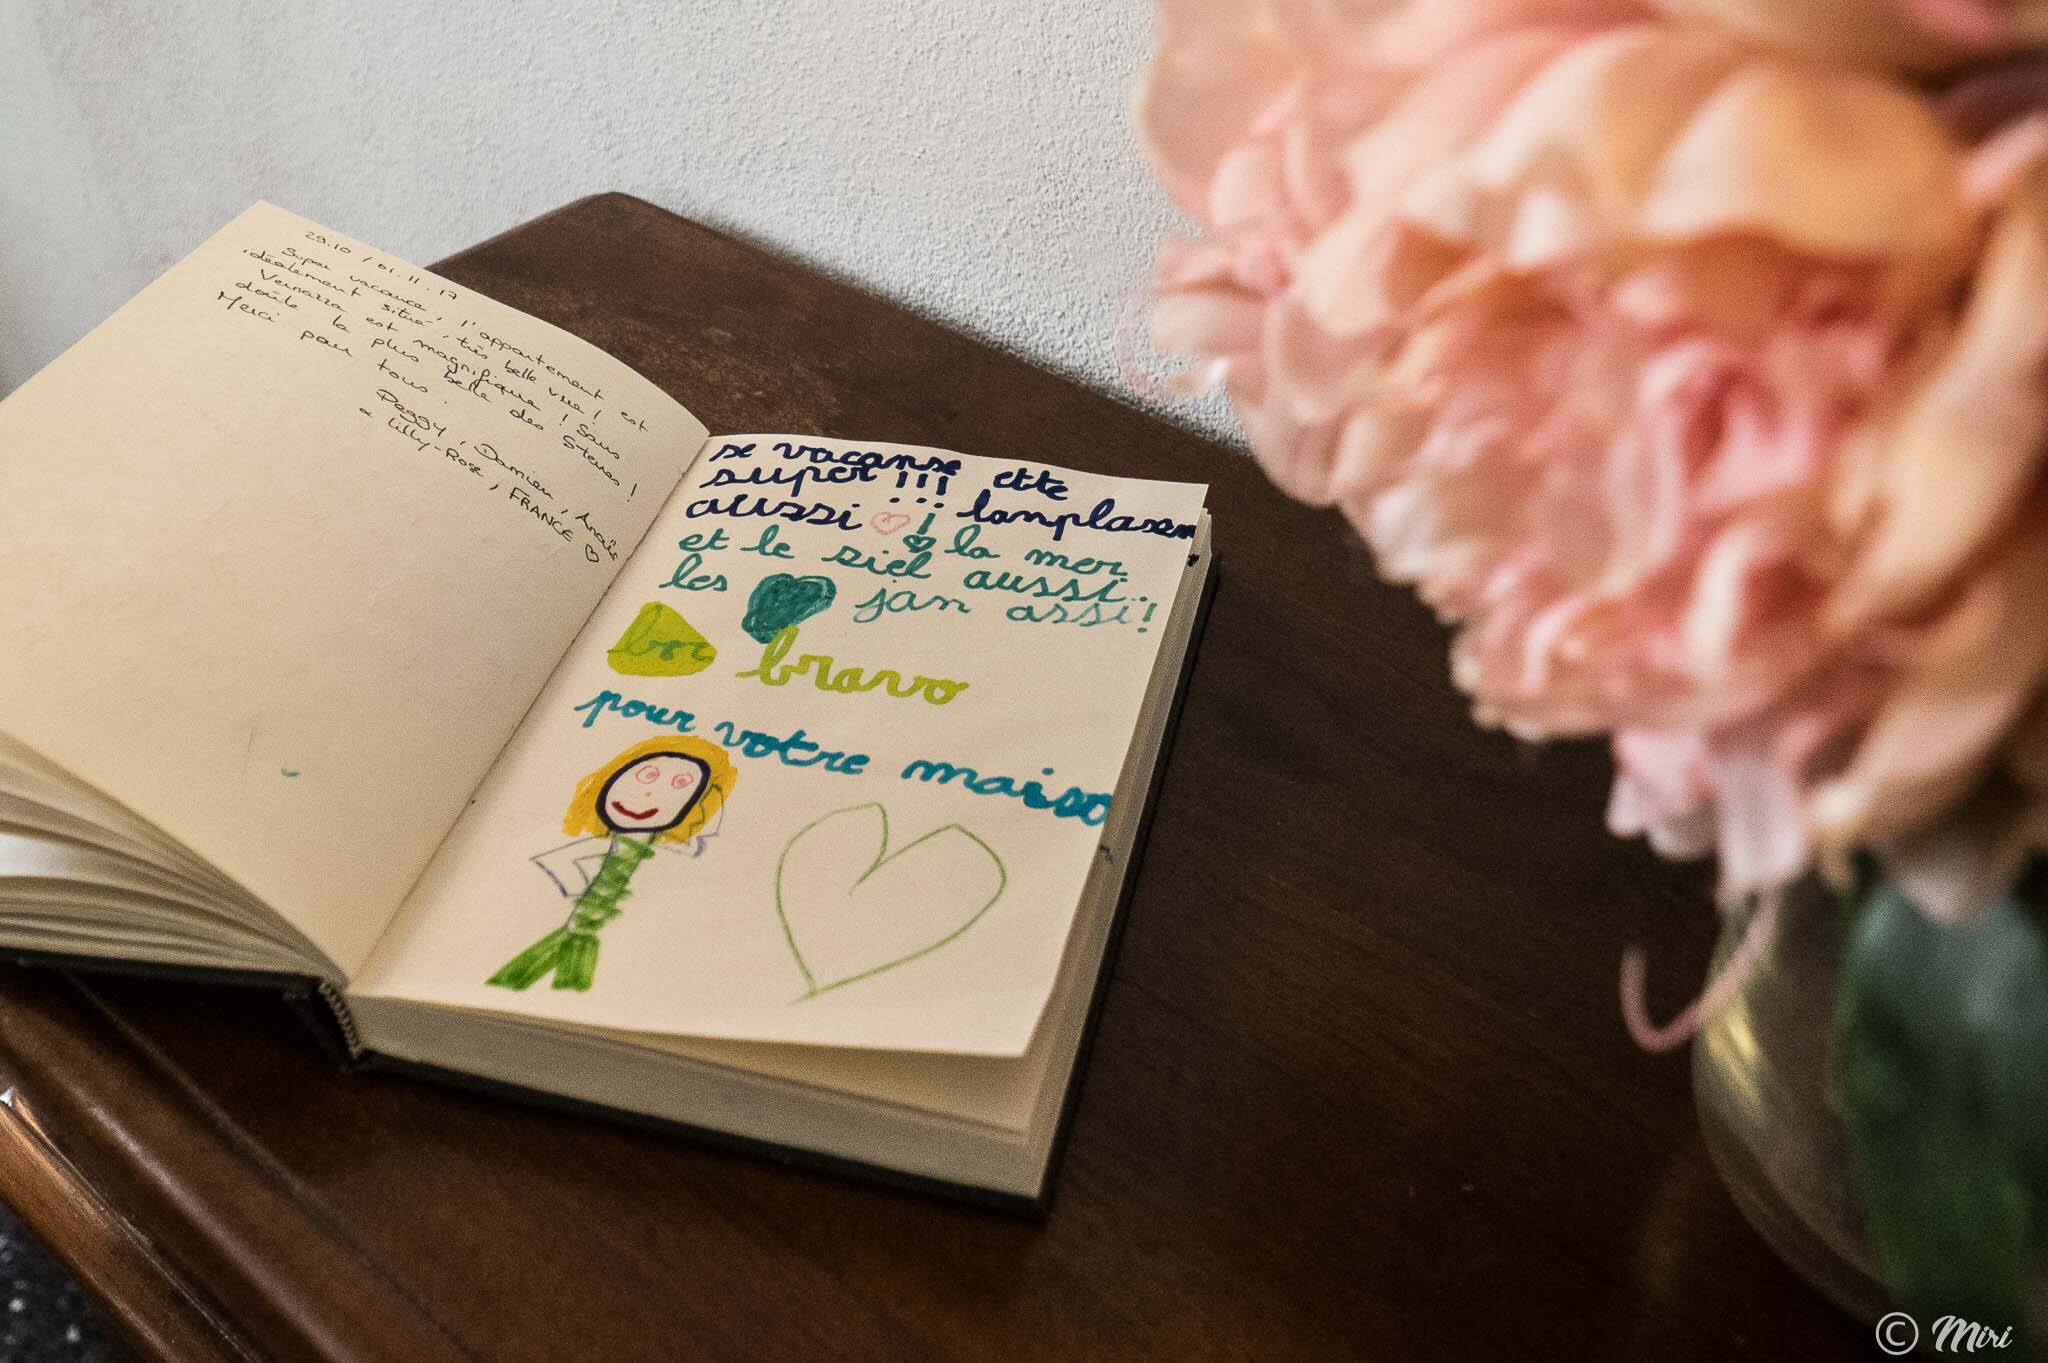 29.10 / 01.11.17
Super vacance, l'appartement est
idéalement situé, très belle vue !
Vernazza est magnifique ! Sans
doute la plus belle des 5 terres !
Merci pour tous.
Peggy, Damien, Anaïs
& Lilly-Rose, FRANCE ♡
se vacanse ette
super !!!
aussi ♡ ! lanplasem
et le siel aussi.. la mer
les jan assi !
bor bravo
pour votre maison
© Miri